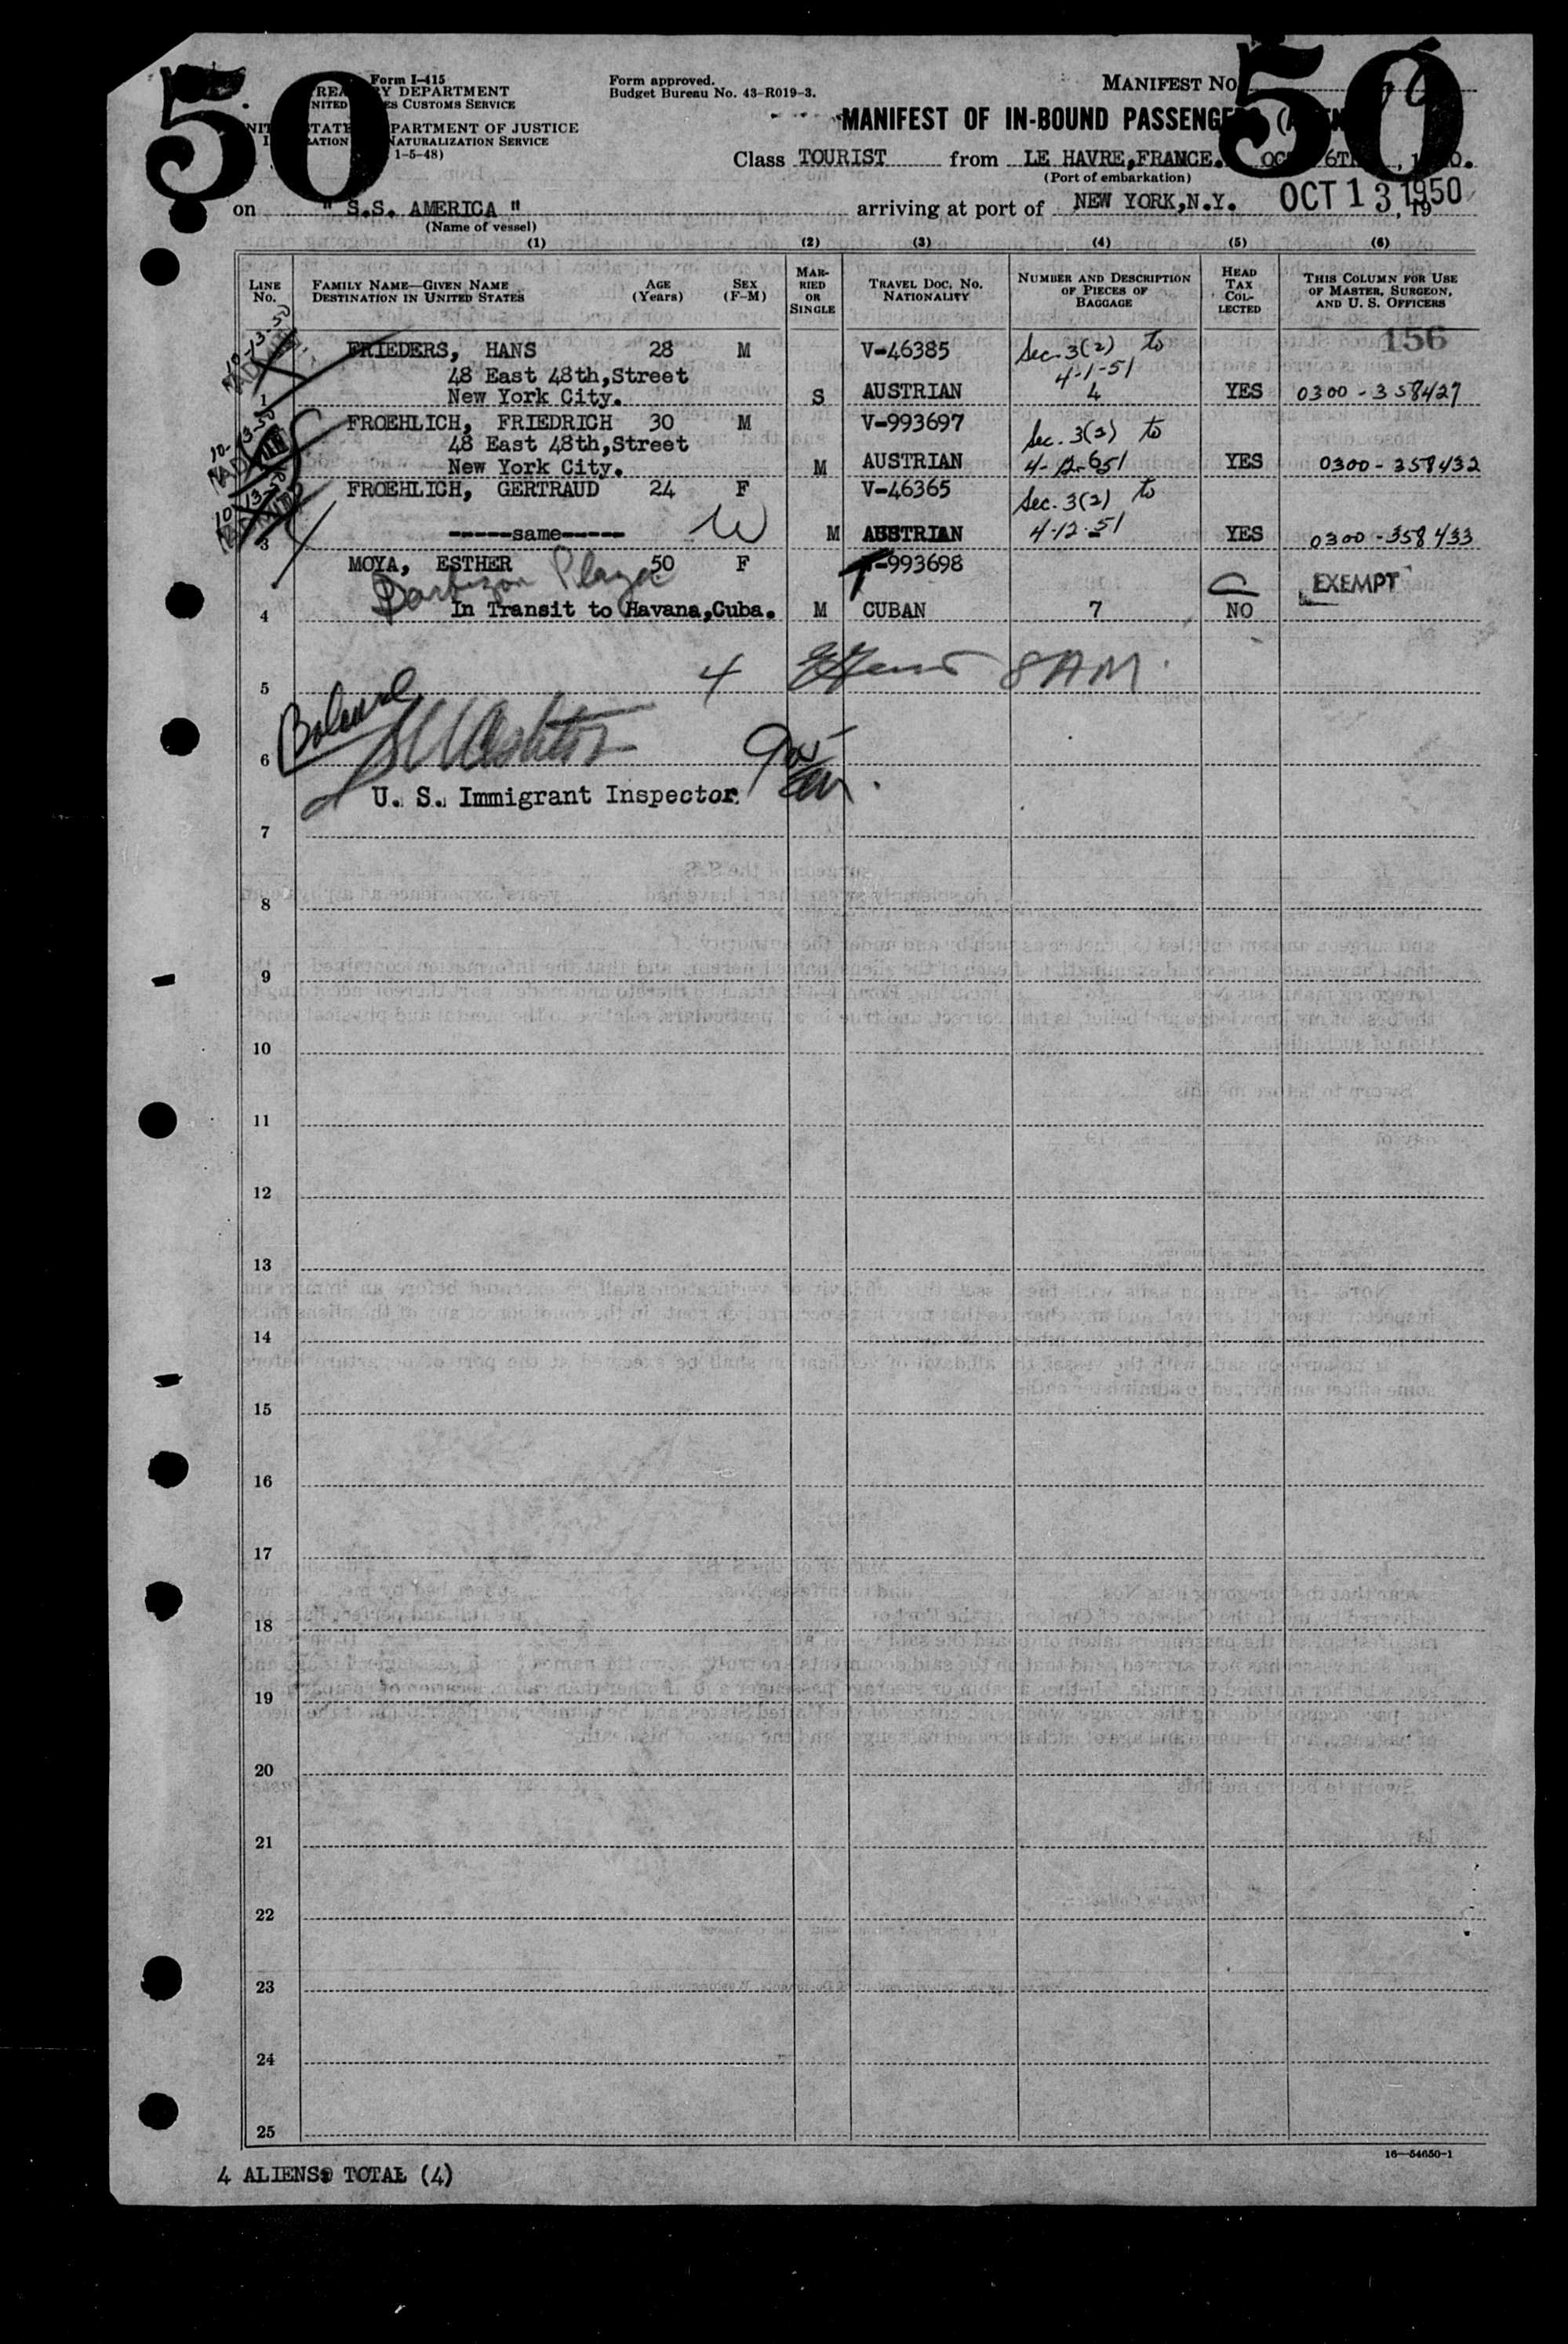 50
50
Form I-415
Y DEPARTMENT
ES CUSTOMS SERVICE
PARTMENT OF JUSTICE
NATURALIZATION SERVICE
1-5-48)
Form approved.
Budget Bureau No. 43-R019-3.
MANIFEST NO
MANIFEST OF IN-BOUND PASSENGE
Class TOURIST from LE HAVRE, FRANCE. 6TH
(Port of embarkation)
on " S.S. AMERICA " arriving at port of NEW YORK, N.Y. OCT 13 1950, 19
(Name of vessel)
(1) (2) (3) (4) (5) (6)
LINE No. FAMILY NAME—GIVEN NAME DESTINATION IN UNITED STATES AGE (Years) SEX (F-M) MARRIED OR SINGLE TRAVEL DOC. NO. NATIONALITY NUMBER AND DESCRIPTION OF PIECES OF BAGGAGE HEAD TAX COLLECTED THIS COLUMN FOR USE OF MASTER, SURGEON, AND U. S. OFFICERS
156
10-13-50
FRIEDERS, HANS 28 M V-46385 Sec. 3(2) to
48 East 48th,Street 4-1-51
1 New York City. S AUSTRIAN 4 YES 0300-358427
10-13-50
FROEHLICH, FRIEDRICH 30 M V-993697 Sec. 3(2) to
48 East 48th,Street
New York City. M AUSTRIAN 6 YES 0300-358432
10-13-50
FROEHLICH, GERTRAUD 24 F V-46365 Sec. 3(2) to
3 -----same----- M AUSTRIAN 4-12-51 YES 0300-358433
W
MOYA, ESTHER 50 F -993698
Barbizon Plaza
EXEMPT
4 In Transit to Havana,Cuba. M CUBAN 7 NO
4 8 AM
5
6
U. S. Immigrant Inspector
7
8
9
10
11
12
13
14
15
16
17
18
19
20
21
22
23
24
25
16—54650-1
4 ALIENS TOTAL (4)